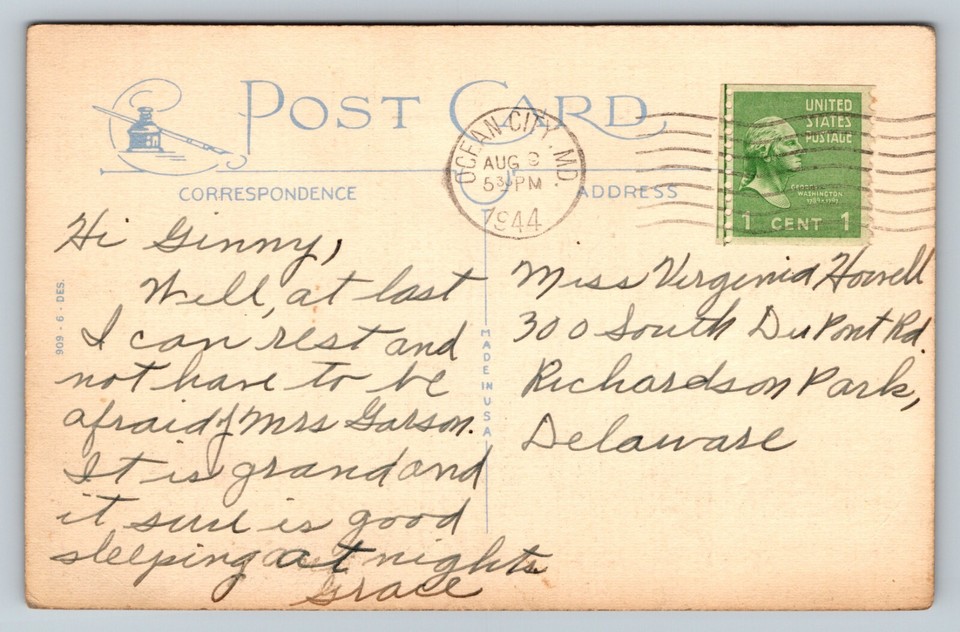 POST CARD
OCEAN CITY, MD.
AUG
5 PM
1944
UNITED
STATES
POSTAGE
GEORGE
WASHINGTON
1789-1797
1 CENT 1
CORRESPONDENCE
ADDRESS
Hi Ginny,
Well, at last
I can rest and
not have to be
afraid of Mrs Garson.
It is grand and
it sure is good
sleeping at nights.
Grace
909-6-DES.
MADE IN USA
Miss Verginia Howell
300 South DuPont Rd.
Richardson Park,
Delaware